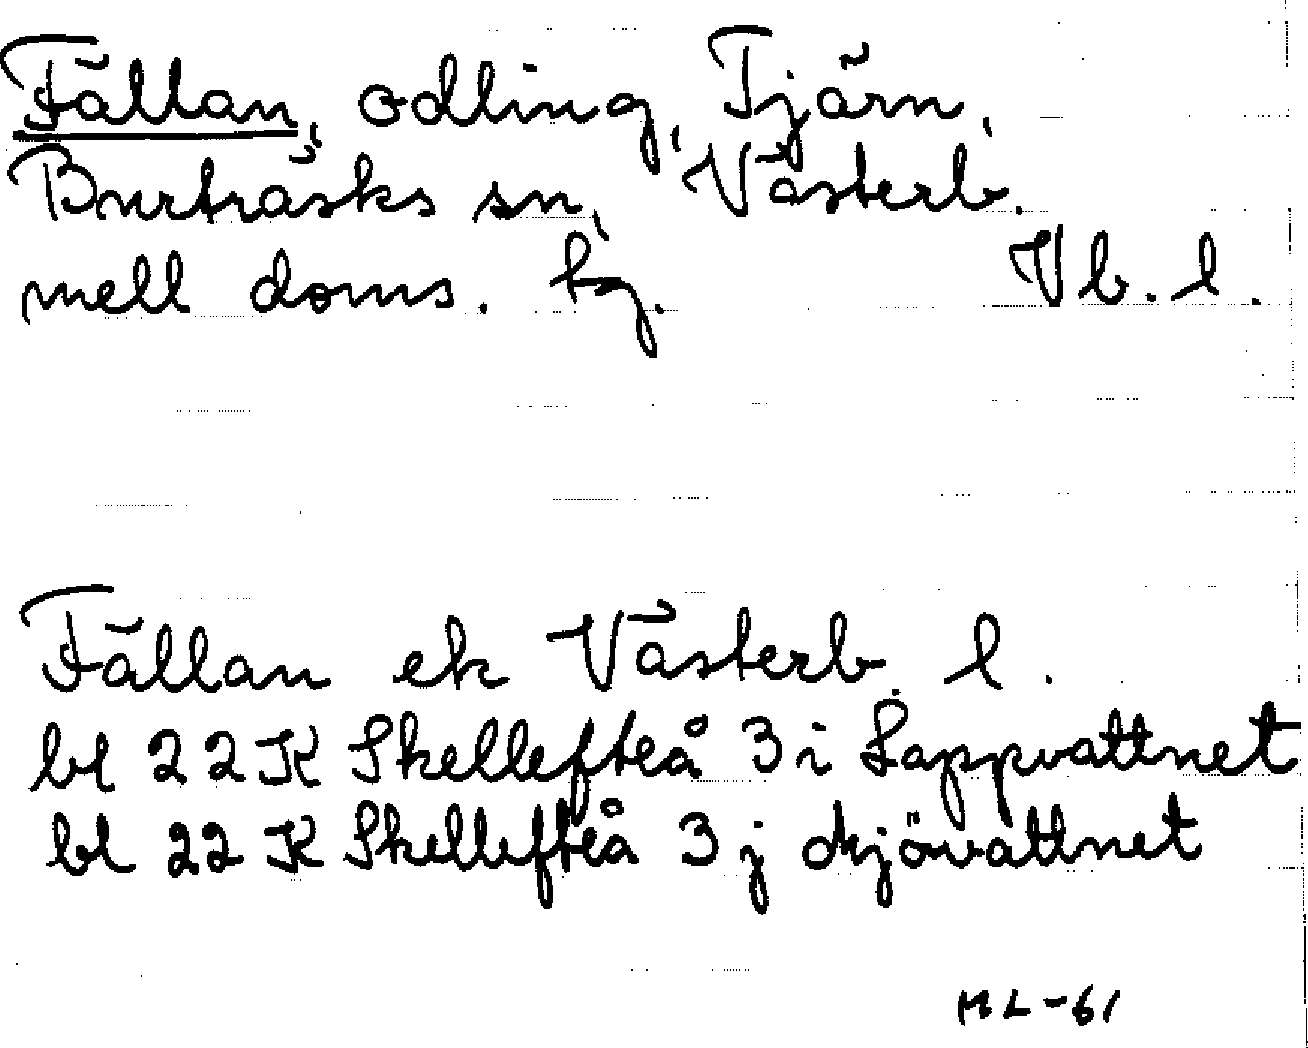 Fällan, odling, Tjärn,
Burträsks sn, Västerb.
mell doms. tg. Vb. l.
Fällan ek Västerb. l.
bl 22 K Skellefteå 3 i Lappvattnet
bl 22 K Skellefteå 3 j
HL-61